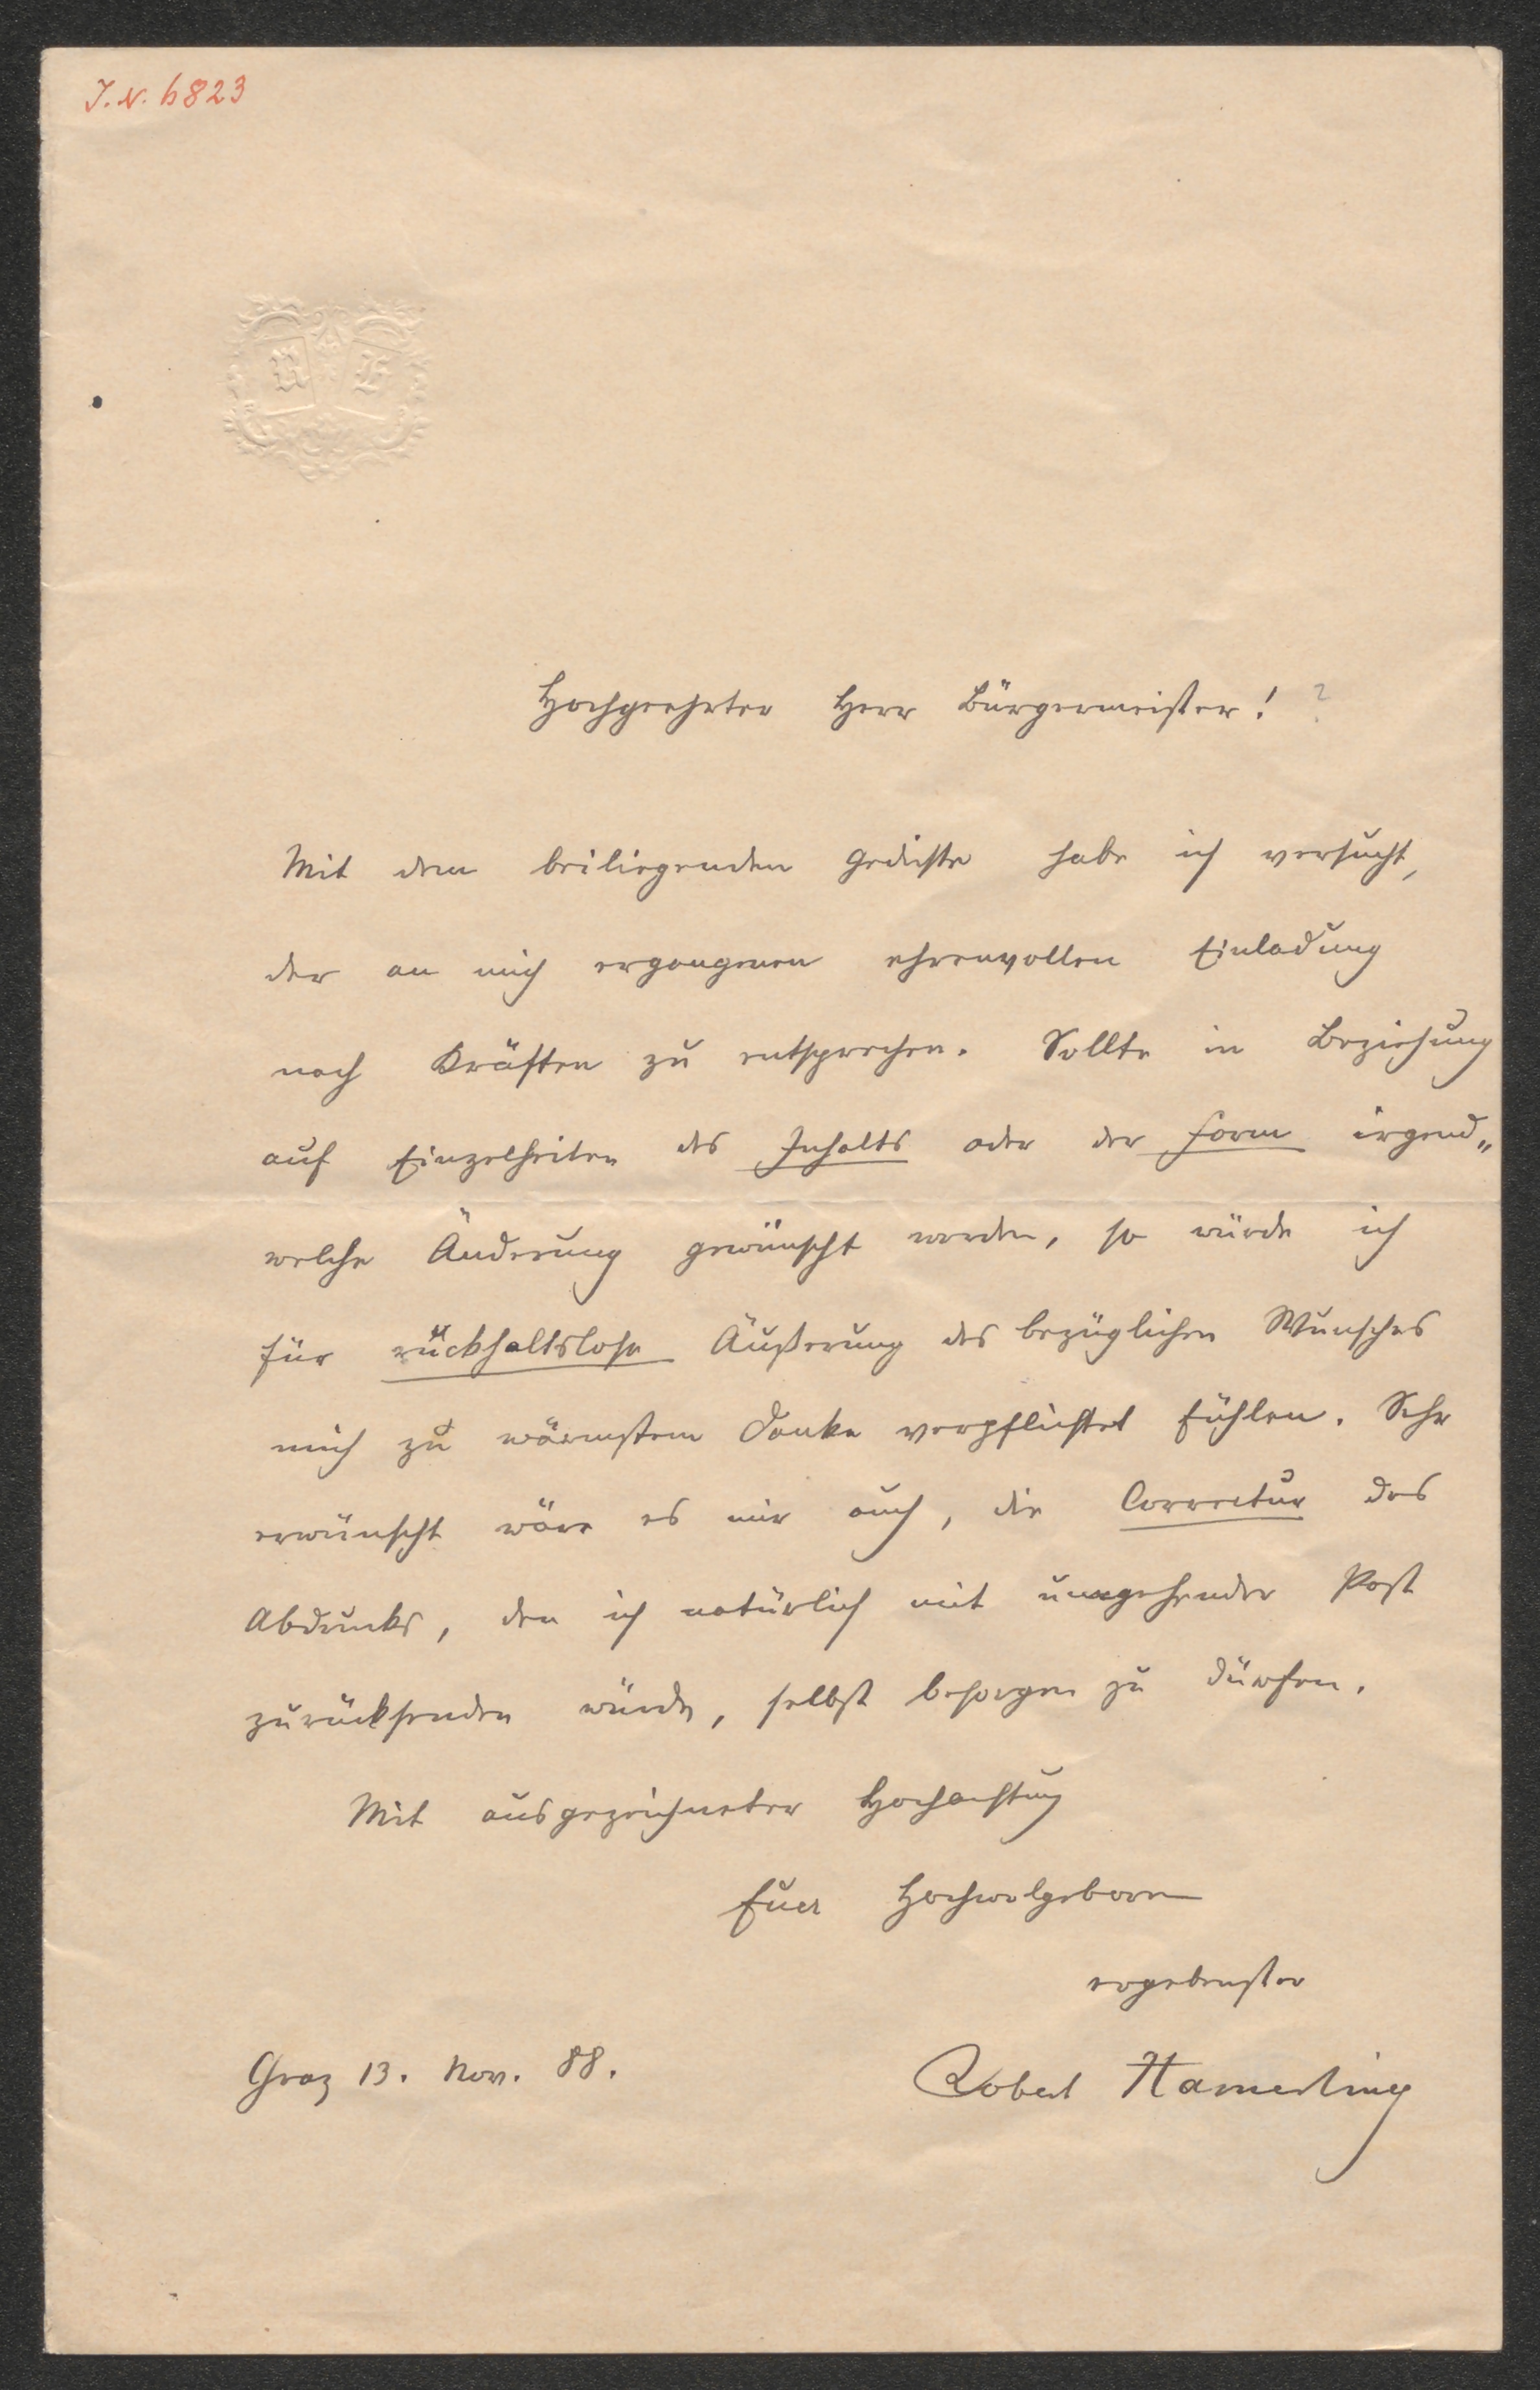 J. N. 6823
Hochgeehrter Herr Bürgermeister! ?
Mit dem beiliegenden Gedichte habe ich versucht,
der an mich ergangenen ehrenvollen Einladung
nach Kräften zu entsprechen. Sollte in Beziehung
auf Einzelheiten des Inhalts oder der Form irgend„
welche Änderung gewünscht werden, so würde ich
für rückhaltslose Äußerung des bezüglichen Wunsches
mich zu wärmstem Danke verpflichtet fühlen. Sehr
erwünscht wäre es mir auch, die Correctur des
Abdrucks, den ich natürlich mit umgehender Post
zurücksenden würde, selbst besorgen zu dürfen.
Mit ausgezeichneter Hochachtung
Euer Hochwolgeboren
ergebenster
Graz 13. Nov. 88. Robert Hamerling